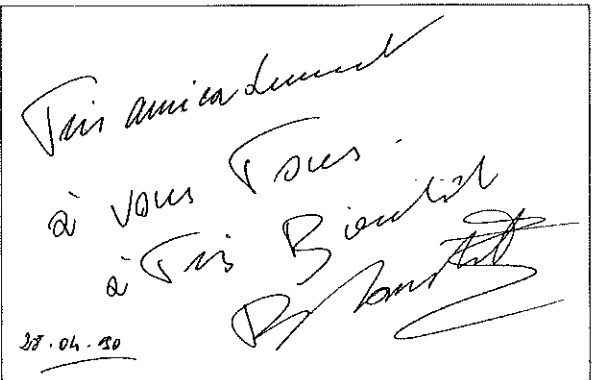 Très amicalement
à vous Tous.
à Très Bientôt
28.04.90